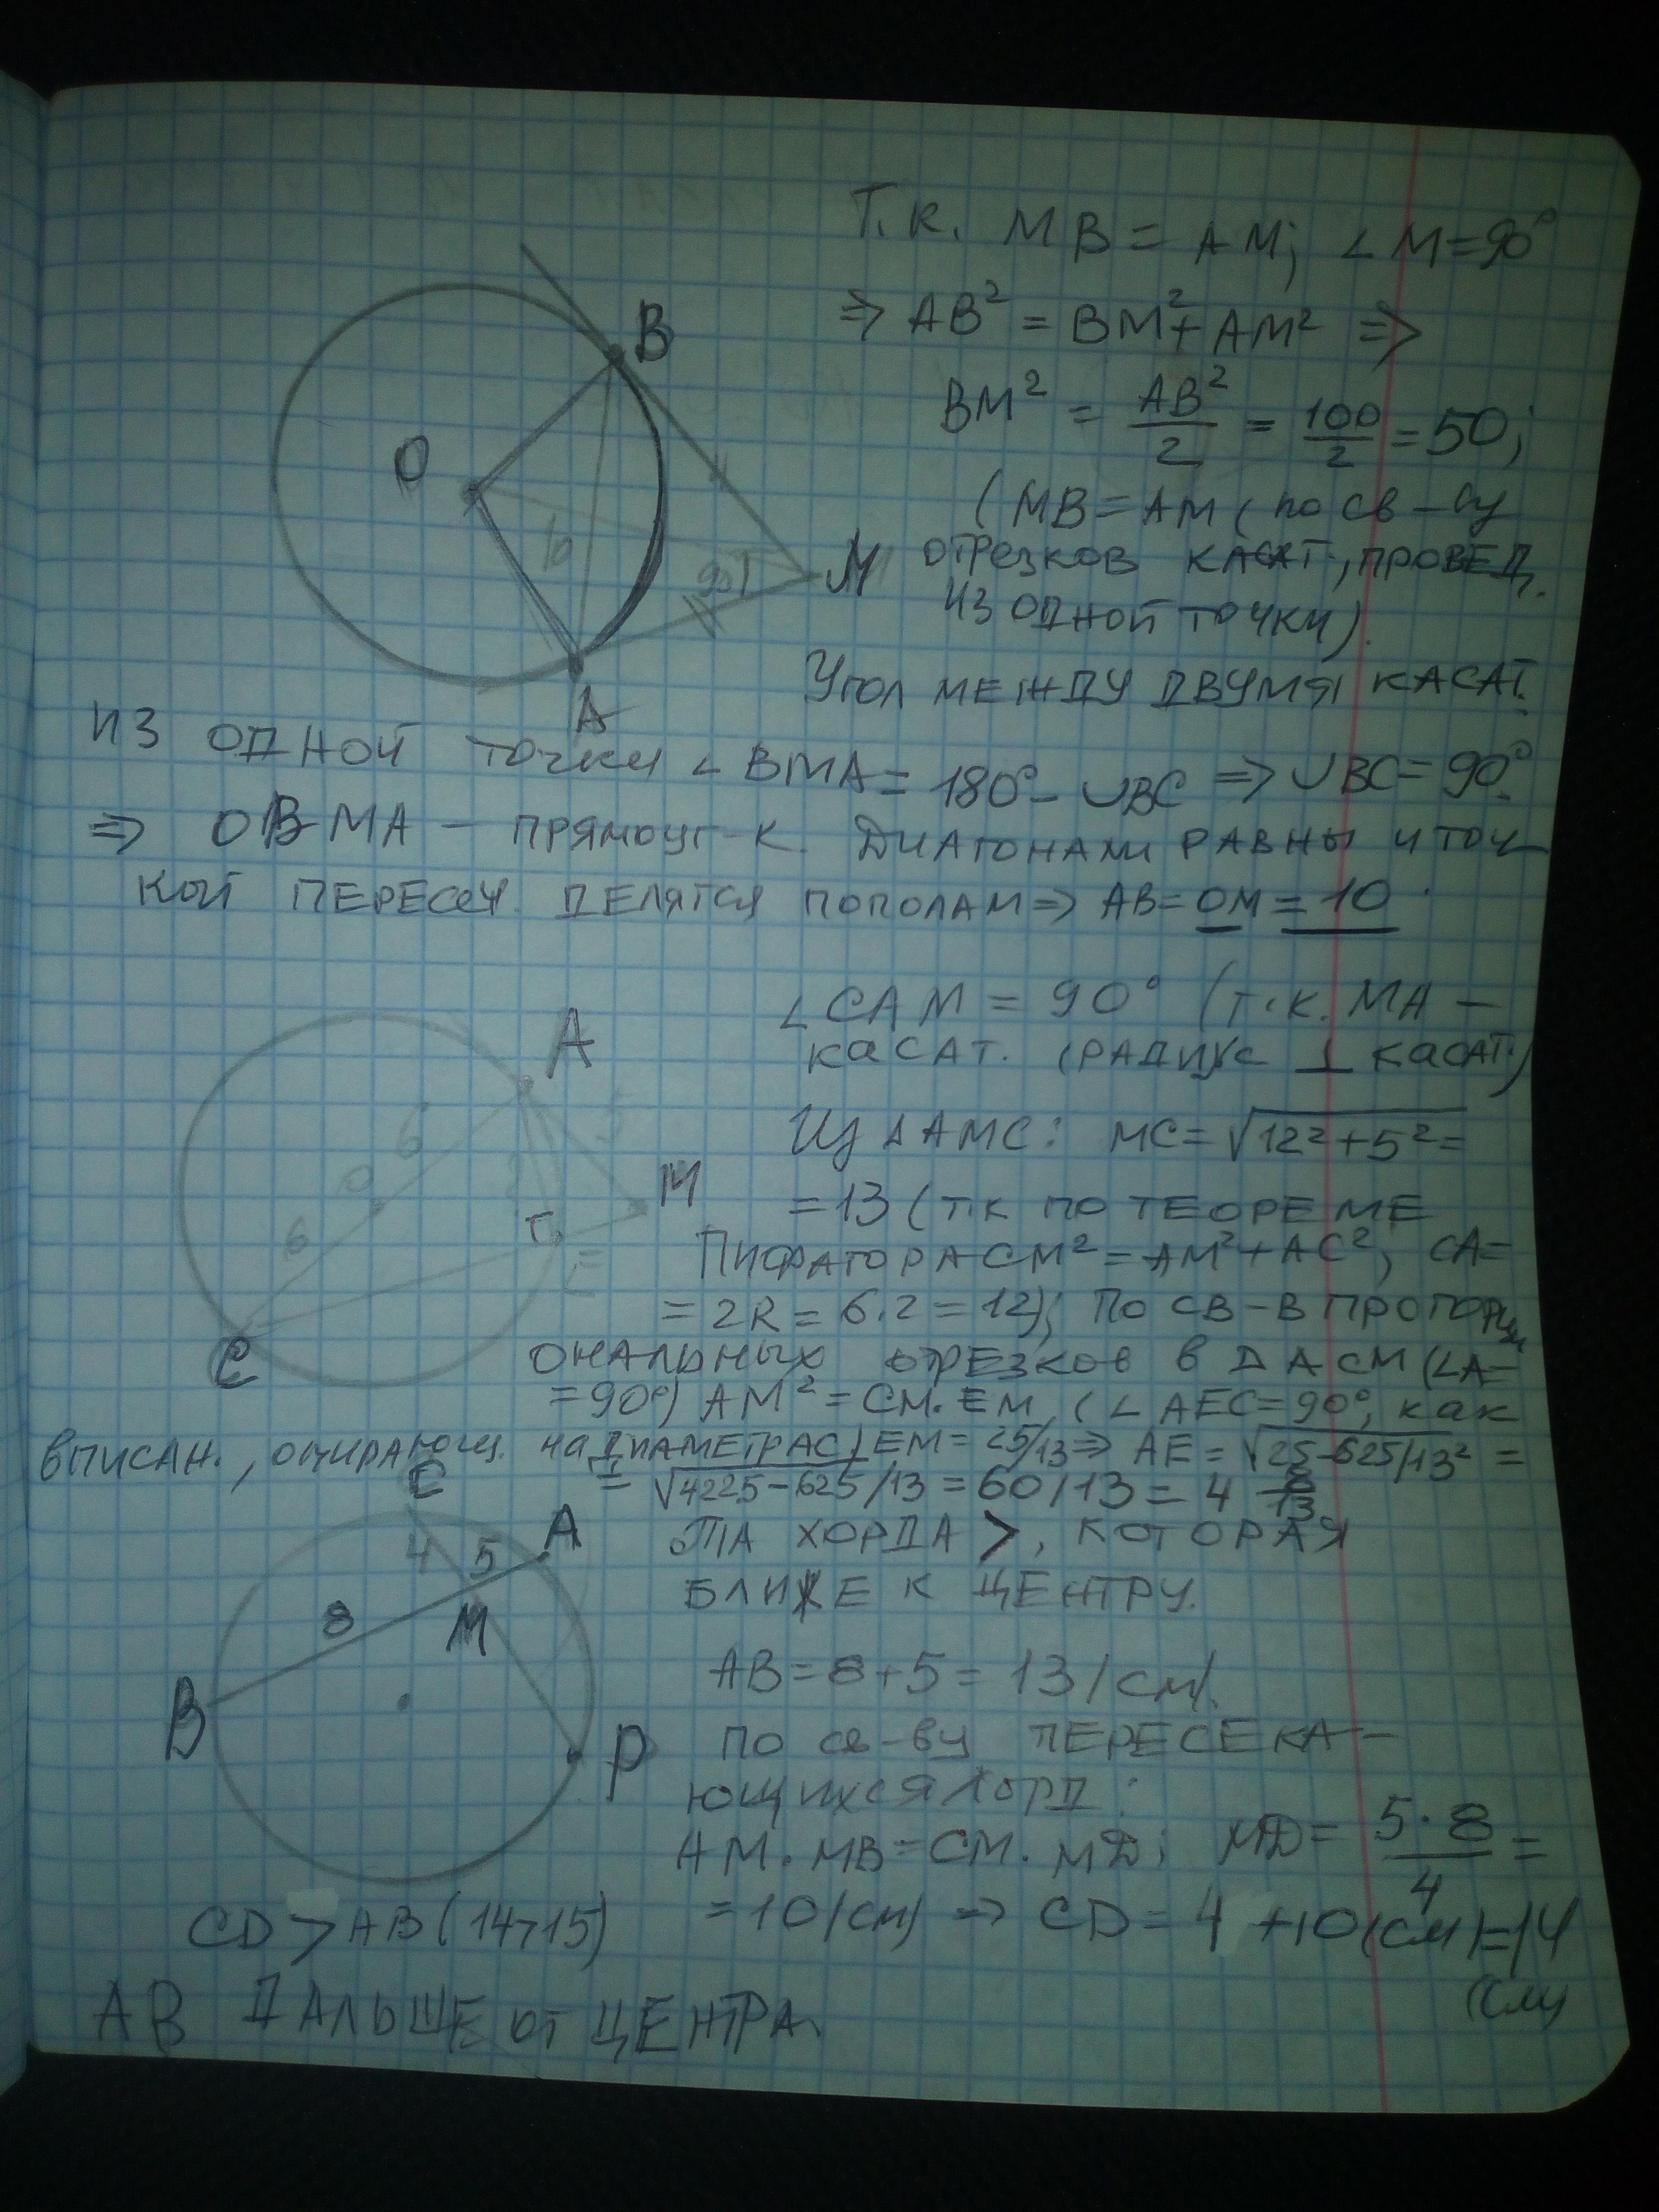 Т.к. MB = AM; ∠M=90°
⇒ AB² = BM²+AM² ⇒
BM² = AB²/2 = 100/2 = 50;
(MB=AM (по св-ву
отрезков касат, провед.
из одной точки).
Угол между двумя касат.
B
O
10
90°
M
A
из одной точки ∠BMA = 180° - ∪BC ⇒ ∪BC = 90°.
⇒ OBMA - прямоуг-к. Диагонали равны и точ
кой пересеч. делятся пополам ⇒ AB=OM=10
∠CAM = 90° (т.к. MA -
касат. (радиус ⊥ касат.)
Из ΔAMC: MC=√12²+5²=
=13 (т.к по теореме
Пифагора CM²=AM²+AC², CA=
=2R=6·2=12); по св-в пропорци
ональных отрезков в ΔACM (∠A=
=90°) AM²=CM·EM, (∠AEC=90°, как
вписан., опирающ. на диаметр AC) EM=25/13⇒ AE=√25-625/13² =
= √4225-625/13=60/13=4 8/13
A
6
5
O
M
6
E
C
Та хорда >, которая
ближе к центру.
AB=8+5=13/см/.
по св-ву пересека-
ющихся хорд:
AM·MB=CM·MD; MD= 5·8/4 =
=10/см/ ⇒ CD=4+10(см)=14
(см)
C
A
4
5
8
M
B
P
CD>AB(14>15)
AB дальше от центра.